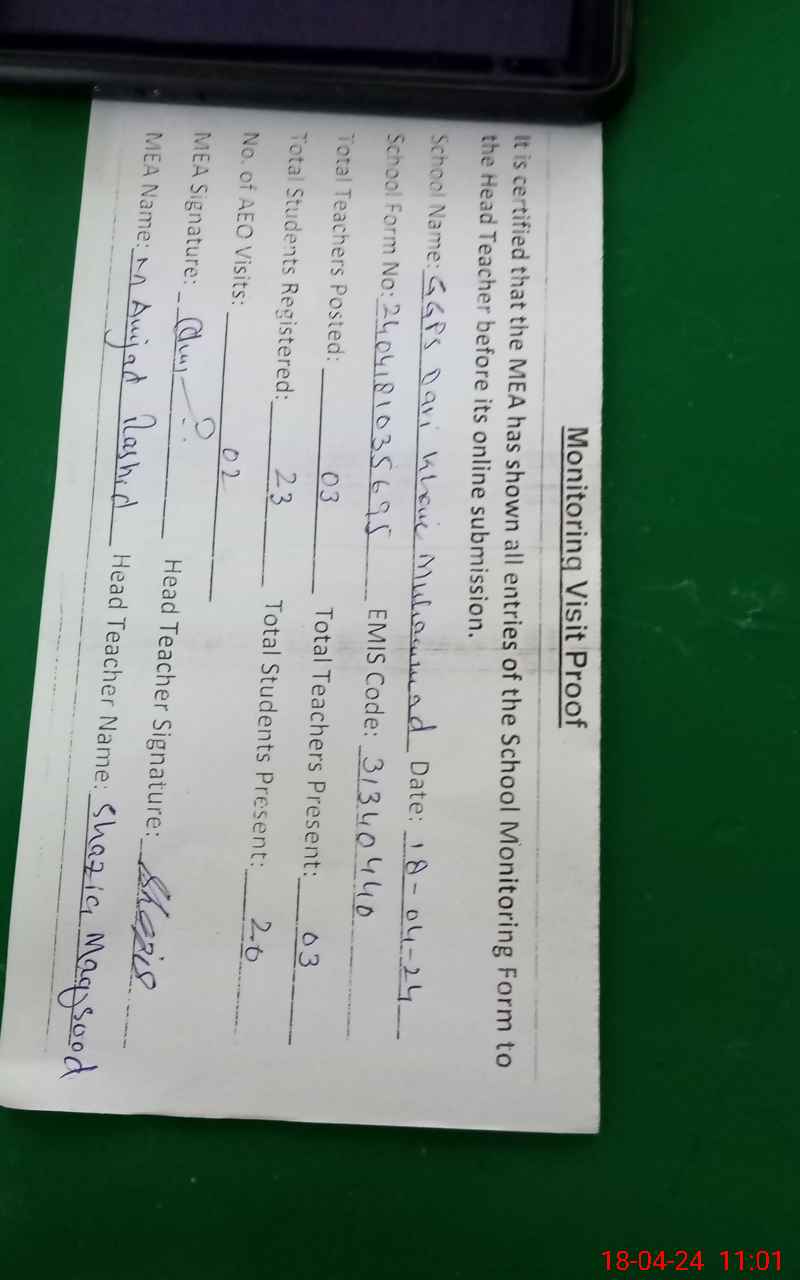 Monitoring Visit Proof
It is certified that the MEA has shown all entries of the School Monitoring Form to
the Head Teacher before its online submission.
School Name: GGPS Dari Khane Muhammad Date: 18-04-24
School Form No: 2404181035695 EMIS Code: 31340440
Total Teachers Posted: 03 Total Teachers Present: 03
Total Students Registered: 23 Total Students Present: 20
No. of AEO Visits: 02
MEA Signature: Head Teacher Signature: Shazia
MEA Name: M Amjad Rashid Head Teacher Name: Shazia Maqsood
18-04-24 11:01